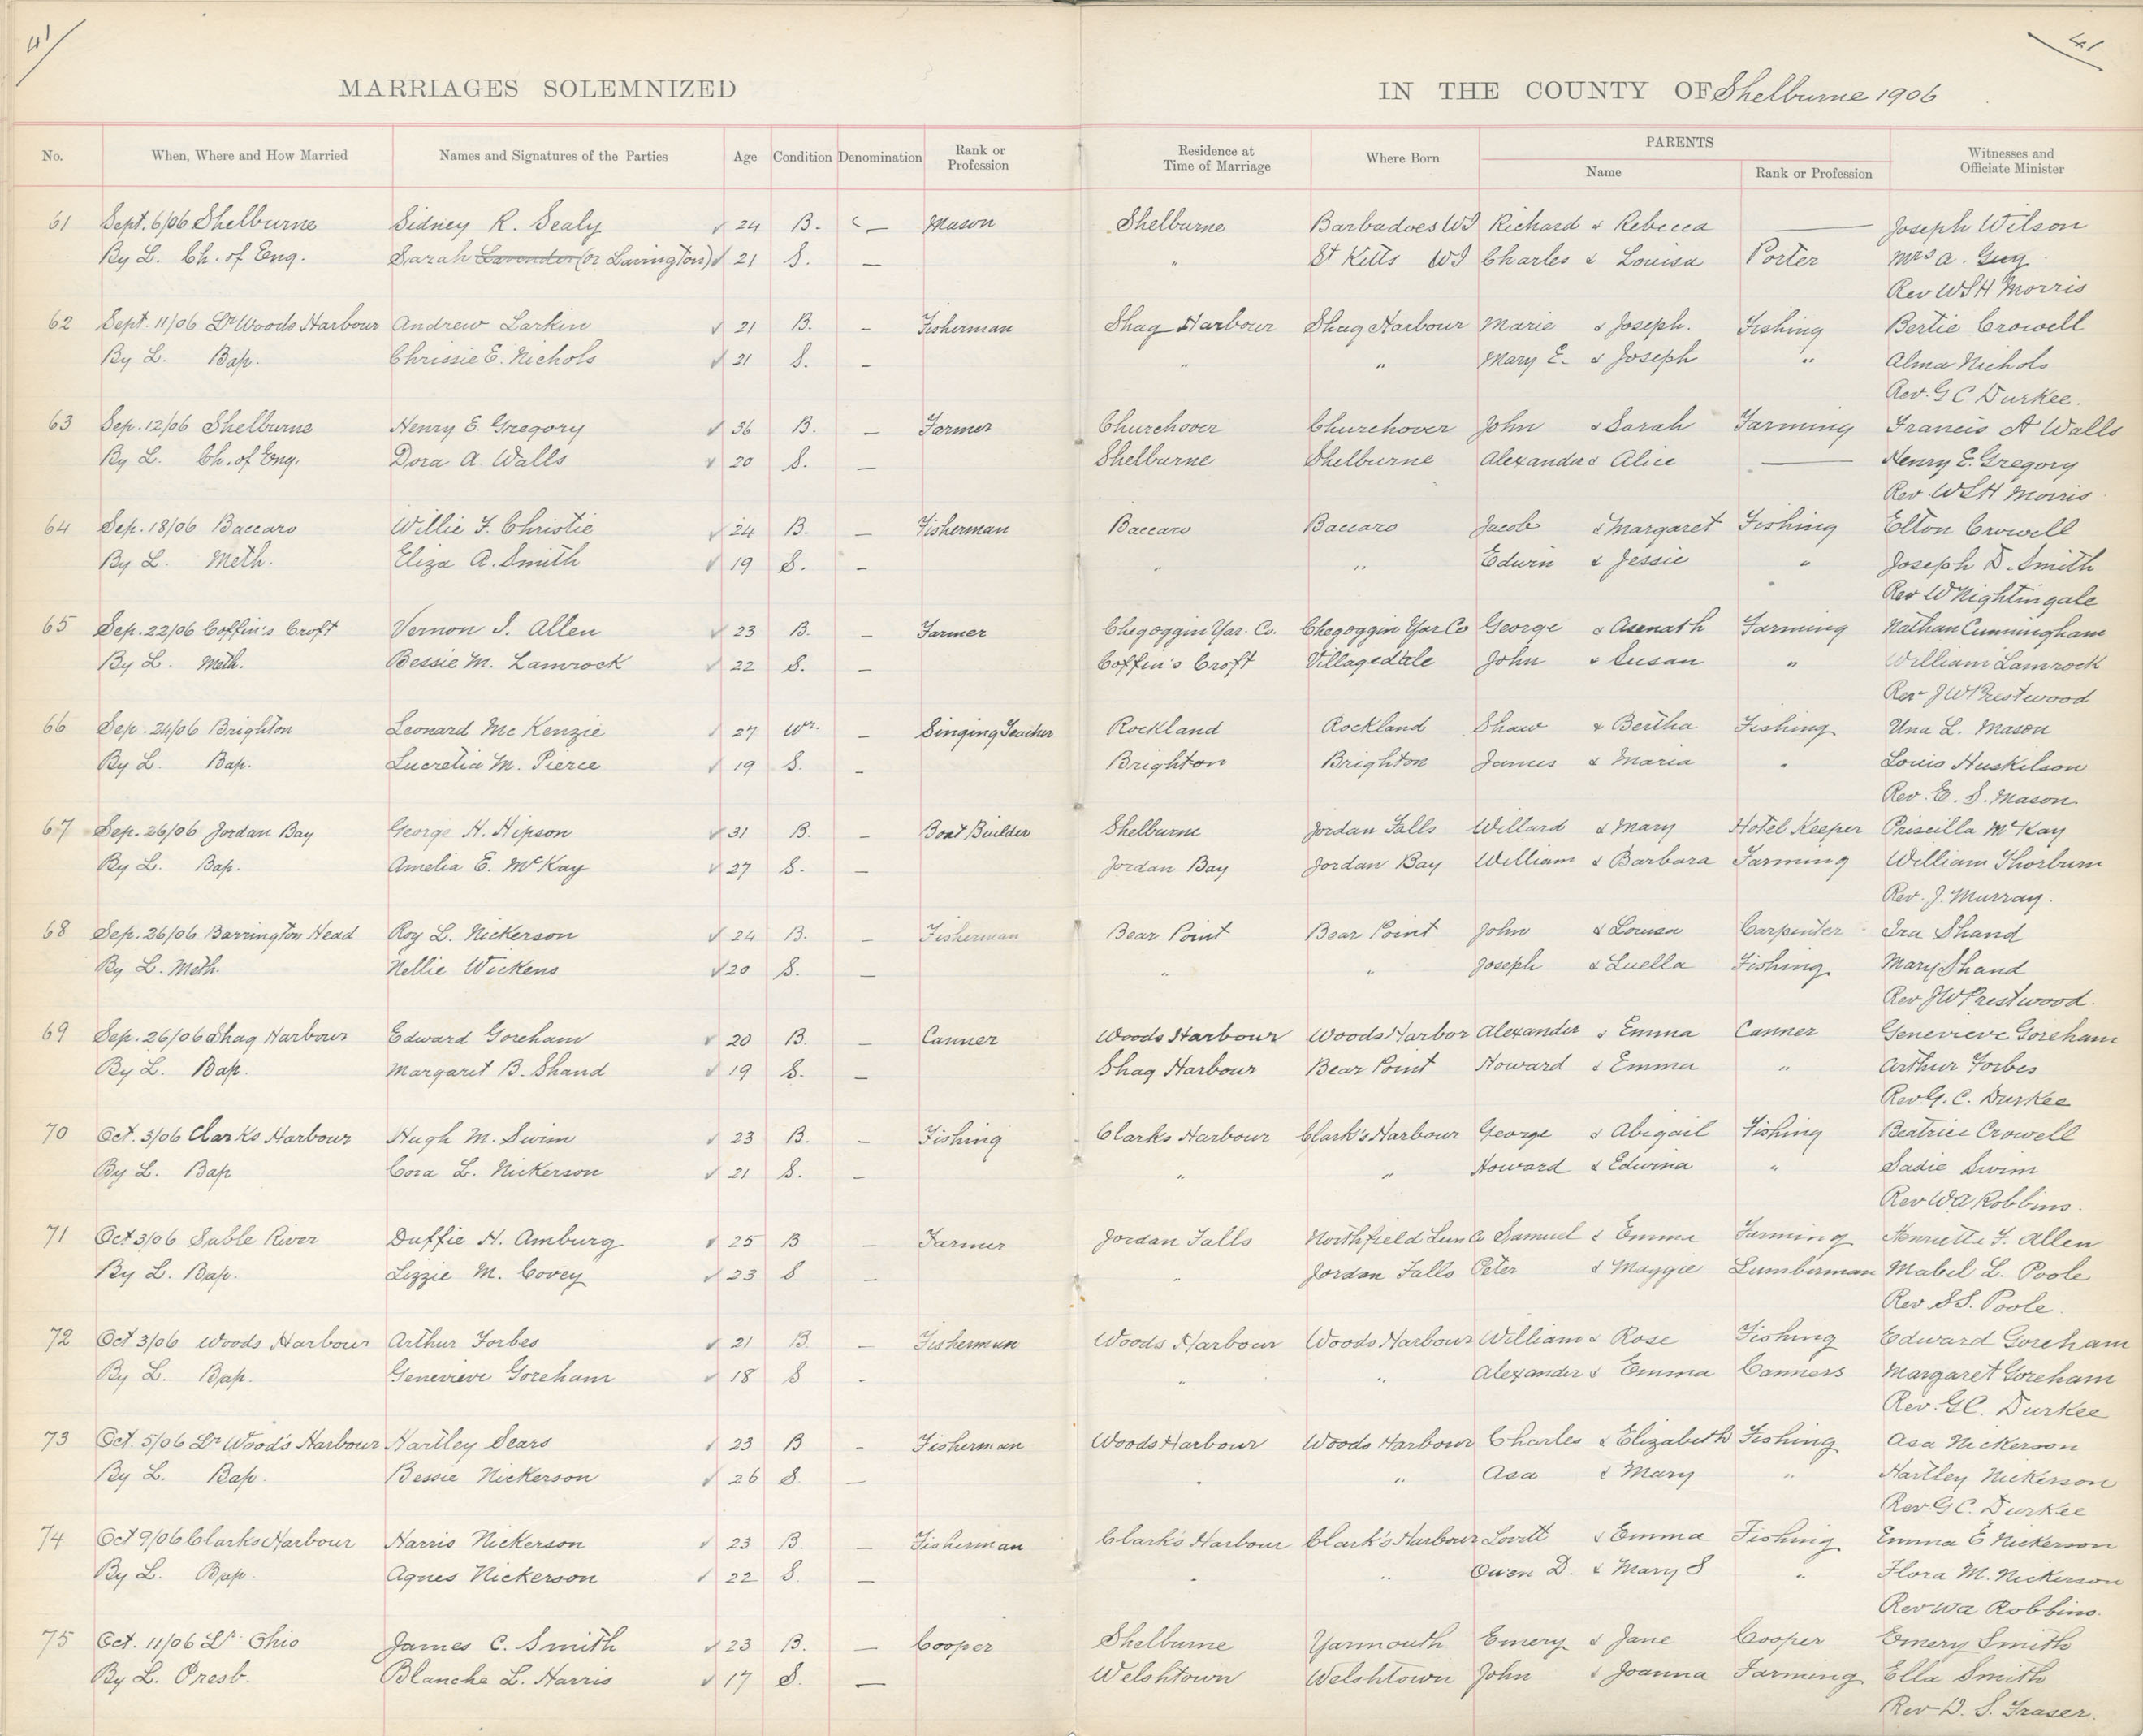 41 41
MARRIAGES SOLEMNIZED IN THE COUNTY OF Shelburne 1906
No. When, Where and How Married Names and Signatures of the Parties Age Condition Denomination Rank or Profession Residence at Time of Marriage Where Born PARENTS Name Rank or Profession Witnesses and Officiate Minister
61 Sept. 6/06 Shelburne Sidney R. Sealy ✓ 24 B. — Mason Shelburne Barbadoes WI Richard & Rebecca — Joseph Wilson
By L. Ch. of Eng. Sarah Lavender (or Lavington) ✓ 21 S. — " St Kitts WI Charles & Louisa Porter Mrs A. Guy
Rev WSH Morris
62 Sept. 11/06 Lr Woods Harbour Andrew Larkin ✓ 21 B. — Fisherman Shag Harbour Shag Harbour Marie & Joseph. Fishing Bertie Crowell
By L. Bap. Chrissie E. Nichols ✓ 21 S. — " " Mary E. & Joseph " Alma Nichols
Rev. G C Durkee.
63 Sep. 12/06 Shelburne Henry E. Gregory ✓ 36 B. — Farmer Churchover Churchover John & Sarah Farming Francis A Walls
By L. Ch. of Eng. Dora A. Walls ✓ 20 S. — Shelburne Shelburne Alexander & Alice — Henry E. Gregory
Rev WSH Morris
64 Sep. 18/06 Baccaro Willie F. Christie ✓ 24 B. — Fisherman Baccaro Baccaro Jacob & Margaret Fishing Elton Crowell
By L. Meth. Eliza A. Smith ✓ 19 S. — " " Edwin & Jessie " Joseph D. Smith
Rev W Nightingale
65 Sep. 22/06 Coffin's Croft Vernon I. Allen ✓ 23 B. — Farmer Chegoggin Yar. Co. Chegoggin Yar Co George & Asenath Farming Nathan Cunningham
By L. Meth. Bessie M. Lamrock ✓ 22 S. — Coffin's Croft Villagedale John & Susan " William Lamrock
Rev J W Prestwood
66 Sep. 24/06 Brighton Leonard McKenzie ✓ 27 Wr. — Singing Teacher Rockland Rockland Shaw & Bertha Fishing Una L. Mason
By L. Bap. Lucretia M. Pierce ✓ 19 S. — Brighton Brighton James & Maria " Louis Huskilson
Rev. E. S. Mason.
67 Sep. 26/06 Jordan Bay George H. Hipson ✓ 31 B. — Boat Builder Shelburne Jordan Falls Willard & Mary Hotel Keeper Priscilla McKay
By L. Bap. Amelia E. McKay ✓ 27 S. — Jordan Bay Jordan Bay William & Barbara Farming William Thorburn
Rev. J. Murray.
68 Sep. 26/06 Barrington Head Roy L. Nickerson ✓ 24 B. — Fisherman Bear Point Bear Point John & Louisa Carpenter Ira Shand
By L. Meth. Nellie Wickens ✓ 20 S. — " " Joseph & Luella Fishing Mary Shand
Rev J W Prestwood.
69 Sep. 26/06 Shag Harbour Edward Goreham ✓ 20 B. — Canner Woods Harbour Woods Harbor Alexander & Emma Canner Genevieve Goreham
By L. Bap. Margaret B. Shand ✓ 19 S. — Shag Harbour Bear Point Howard & Emma " Arthur Forbes
Rev G. C. Durkee
70 Oct. 3/06 Clarks Harbour Hugh M. Swim ✓ 23 B. — Fishing Clarks Harbour Clark's Harbour George & Abigail Fishing Beatrice Crowell
By L. Bap Cora L. Nickerson ✓ 21 S. — " " Howard & Edwina " Sadie Swim
Rev WA Robbins.
71 Oct 3/06 Sable River Duffie H. Amburg ✓ 25 B — Farmer Jordan Falls Northfield Lun Co Samuel & Emma Farming Henrietta F. Allen
By L. Bap. Lizzie M. Covey ✓ 23 S — " Jordan Falls Peter & Maggie Lumberman Mabel L. Poole
Rev S S. Poole.
72 Oct 3/06 Woods Harbour Arthur Forbes ✓ 21 B. — Fisherman Woods Harbour Woods Harbour William & Rose Fishing Edward Goreham
By L. Bap. Genevieve Goreham ✓ 18 S — " " Alexander & Emma Canners Margaret Goreham
Rev. G C. Durkee
73 Oct. 5/06 Lr Wood's Harbour Hartley Sears ✓ 23 B — Fisherman Woods Harbour Woods Harbour Charles & Elizabeth Fishing Asa Nickerson
By L. Bap. Bessie Nickerson ✓ 26 S. — " " Asa & Mary " Hartley Nickerson
Rev. G C. Durkee
74 Oct 9/06 Clarks Harbour Harris Nickerson ✓ 23 B. — Fisherman Clark's Harbour Clark's Harbour Lovitt & Emma Fishing Emma E Nickerson
By L. Bap. Agnes Nickerson ✓ 22 S. — " " Owen D. & Mary S " Flora M. Nickerson
Rev WA Robbins.
75 Oct. 11/06 Lr Ohio James C. Smith ✓ 23 B. — Cooper Shelburne Yarmouth Emery & Jane Cooper Emery Smith
By L. Presb. Blanche L. Harris ✓ 17 S. — Welshtown Welshtown John & Joanna Farming Ella Smith
Rev D. S. Fraser.